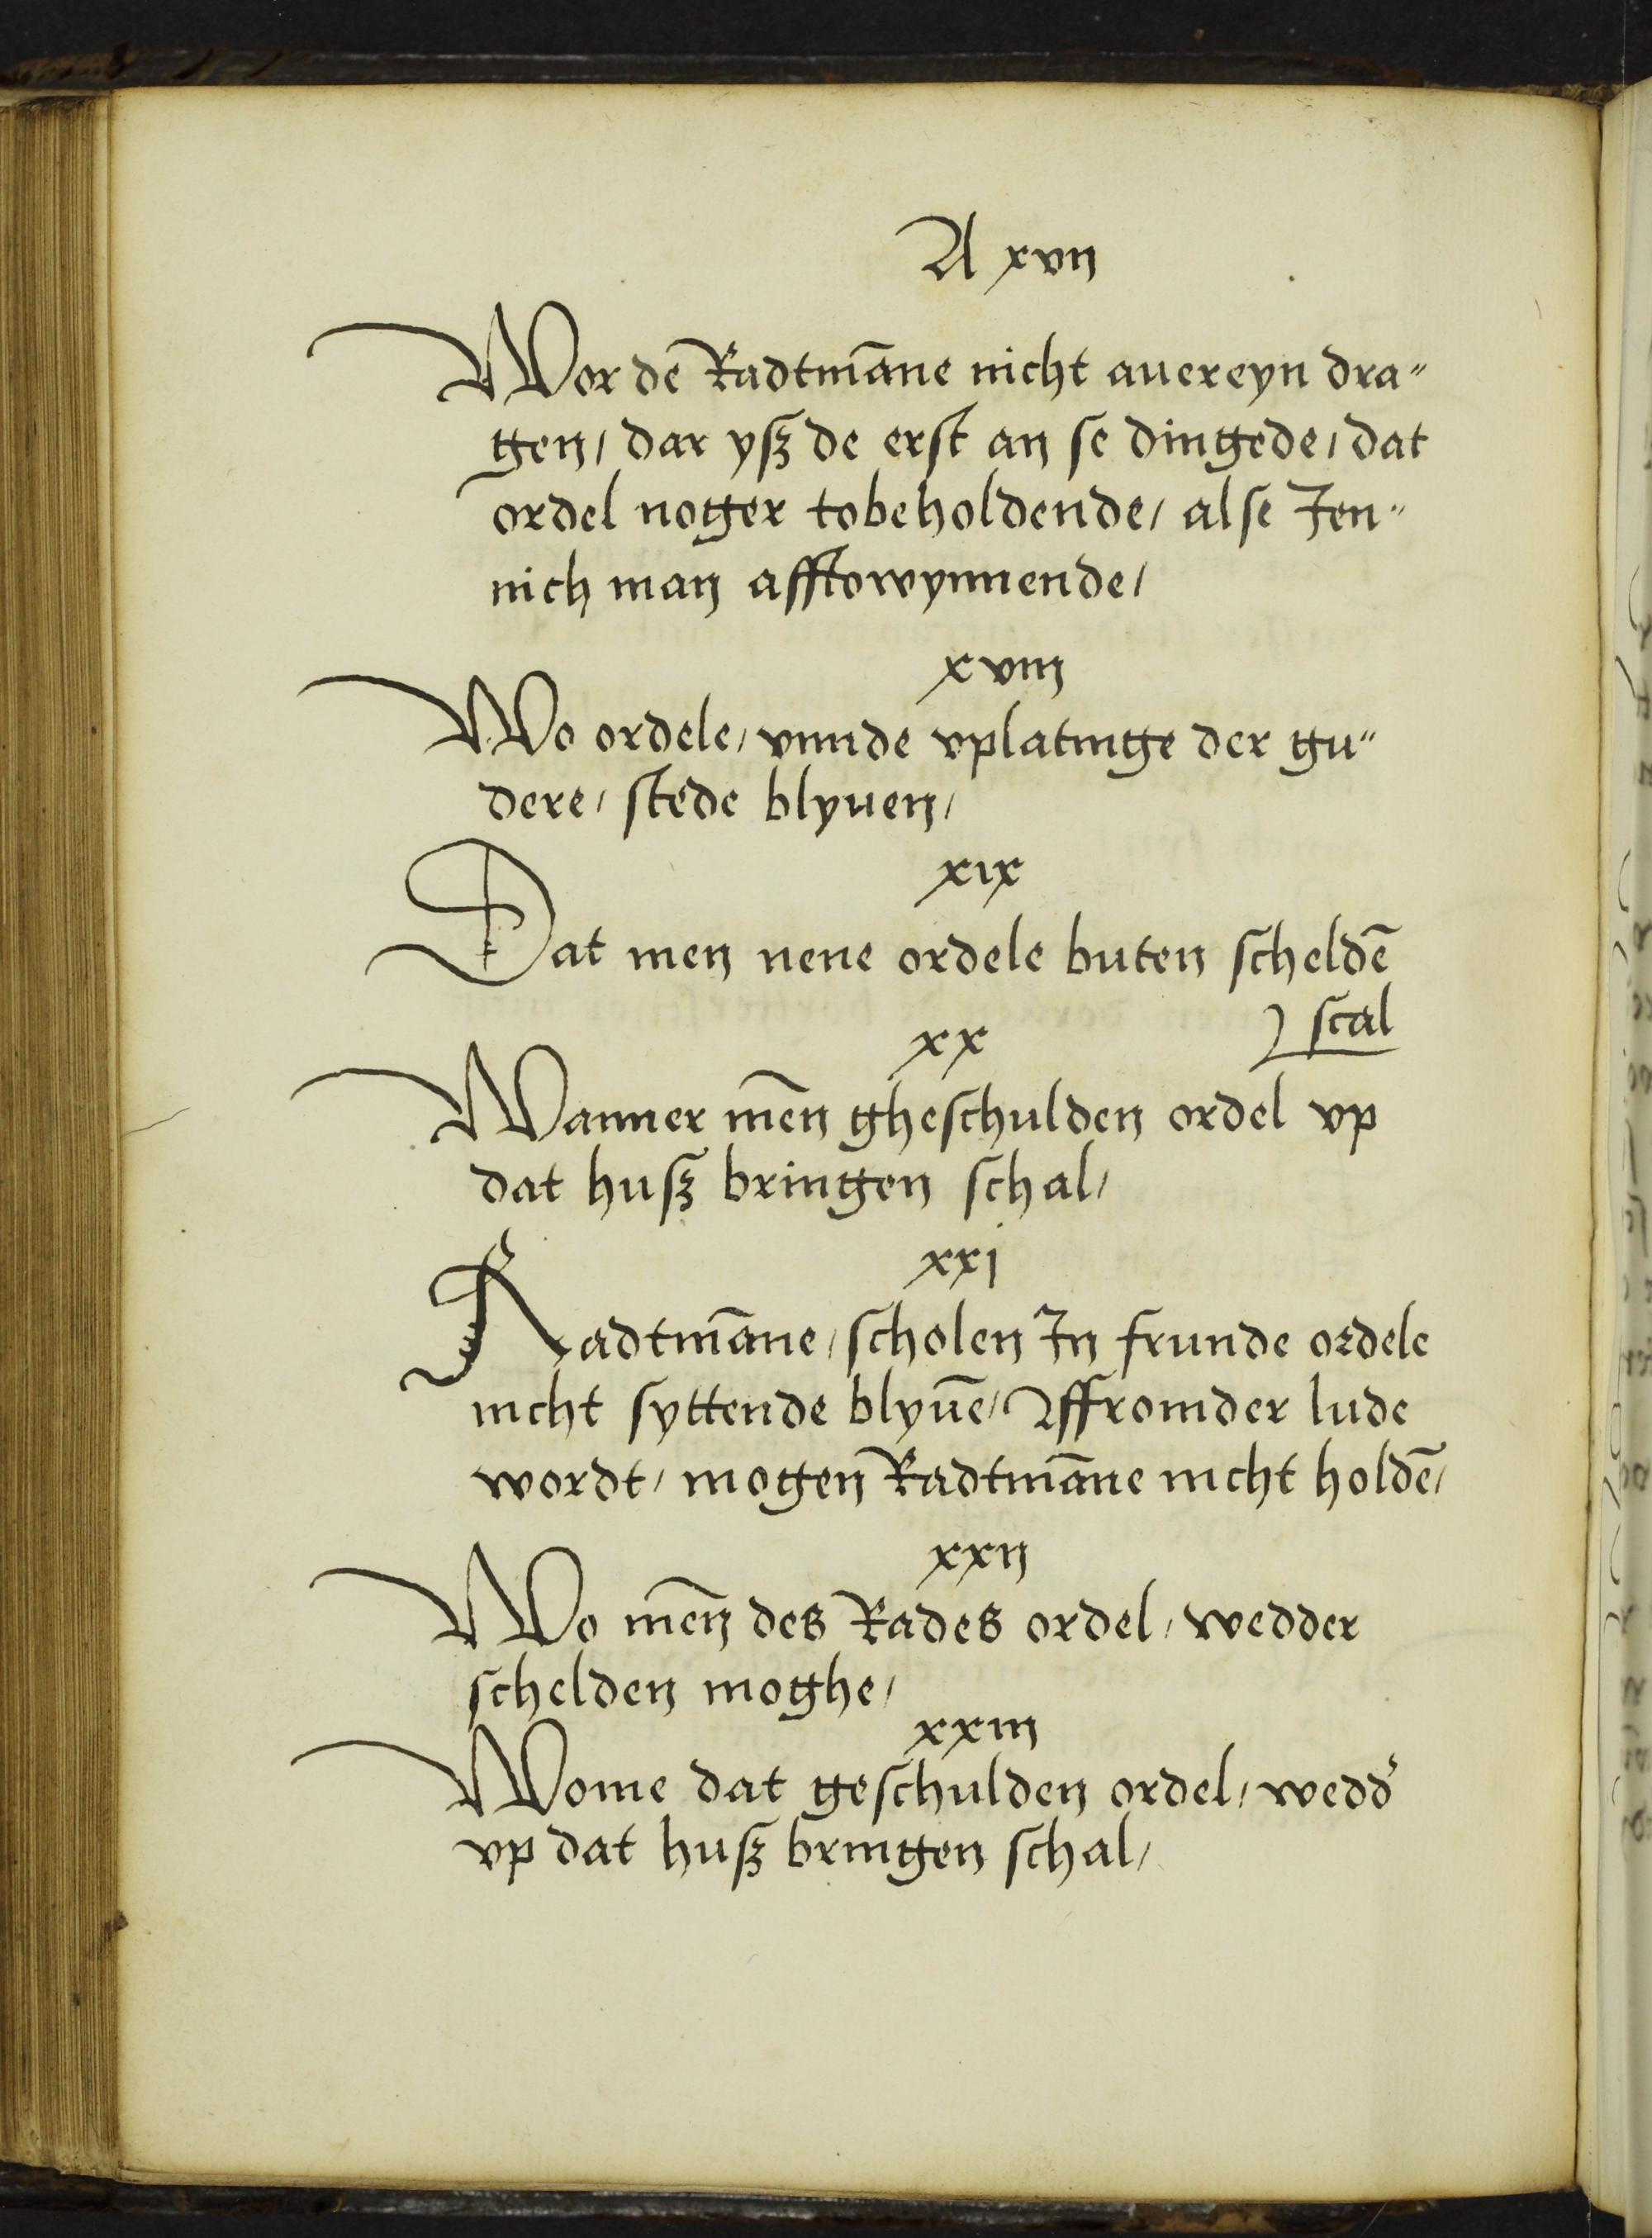 A xvij
Wor de Radtma̅ne nicht auereyn dra⸗
gen/ dar yſʒ de erſt an ſe dingede/ dat
ordel noger tobeholdende/ alſe Jen⸗
nich man afftowynnende/
xviij
Wo ordele/ vnnde vplatinge der gu⸗
dere/ ſtede blyuen/
xix
Dat men nene ordele buten ſchelde̅
ſcal
xx
Wanner me̅n gheſchulden ordel vp
dat huſʒ bringen ſchal/
xxj
Radtma̅ne/ ſcholen Jn frunde ordele
nicht ſyttende blyue̅/ Uffromder lude
wordt/ mogen Radtma̅ne nicht holde̅/
xxij
Wo me̅n des Rades ordel/ wedder
ſchelden moghe/
xxiij
Wome dat geſchulden ordel/ wedd'
vp dat huſʒ bringen ſchal/